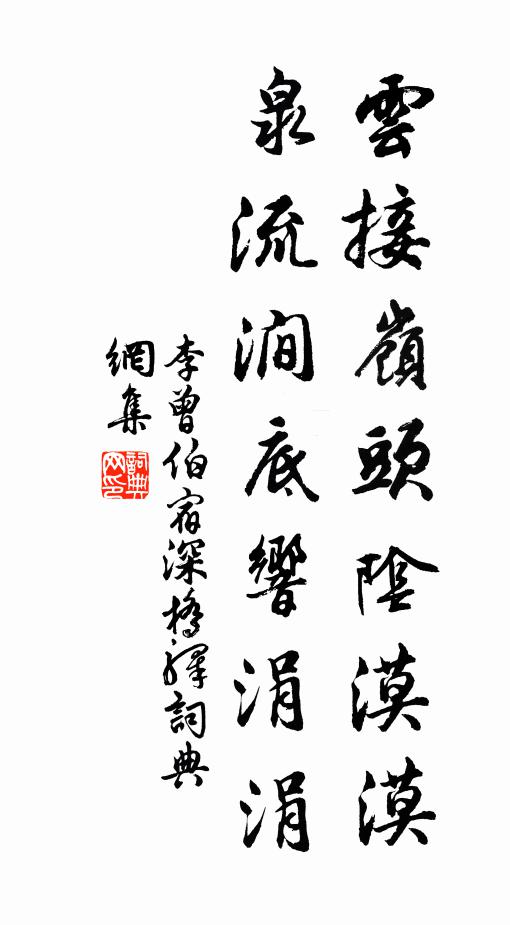 雲接嶺頭陰漠漠
泉流澗底響涓涓
李曾伯宿深橋驛詞典
網集
詞典網印